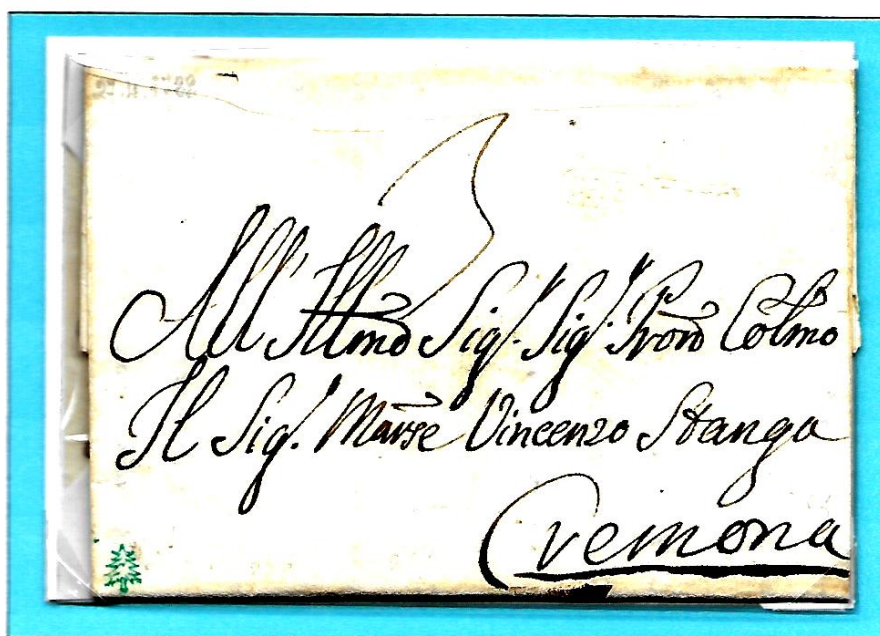 3
All' Illmo Sig.r Sig.r Pron Colmo
Il Sig.r Marse Vincenzo Stanga
Cremona